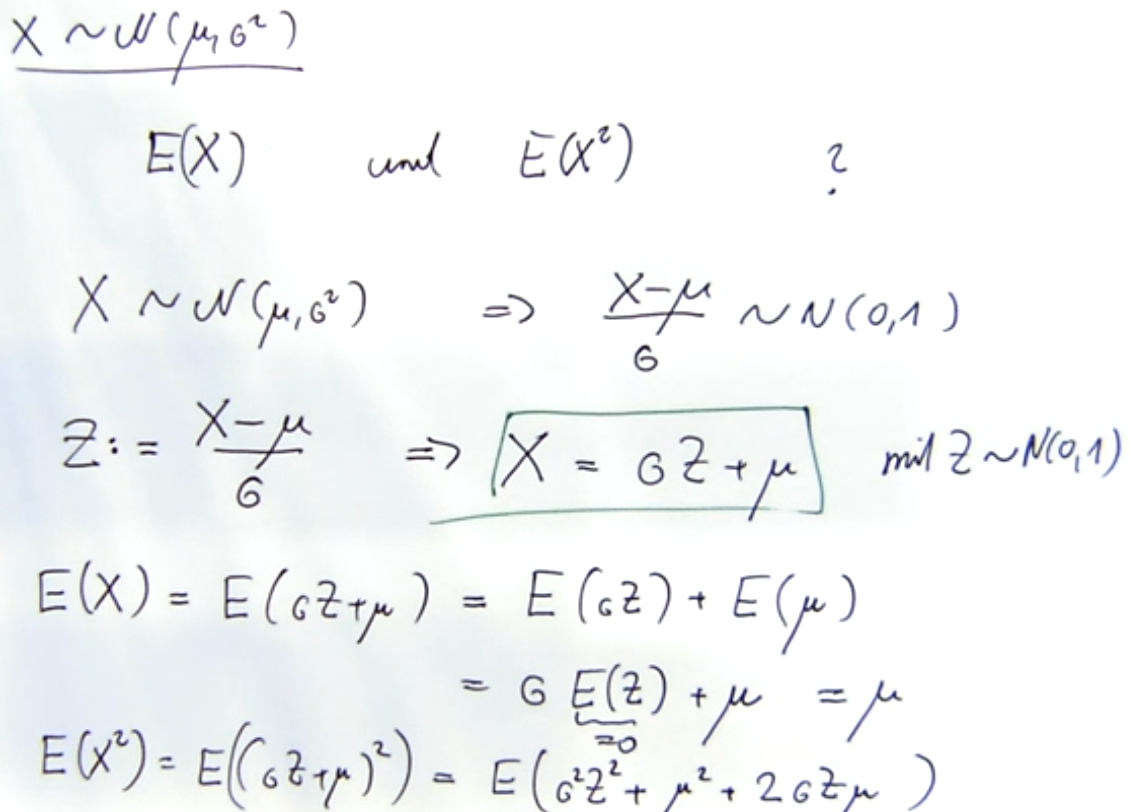 X ~ N(μ, σ²)
E(X) und E(X²) ?
X ~ N(μ, σ²) => (X-μ)/σ ~ N(0,1)
Z := (X-μ)/σ => X = σZ + μ mit Z ~ N(0,1)
E(X) = E(σZ+μ) = E(σZ) + E(μ)
= σ E(Z) + μ = μ
=0
E(X²) = E((σZ+μ)²) = E(σ²Z² + μ² + 2σZμ)